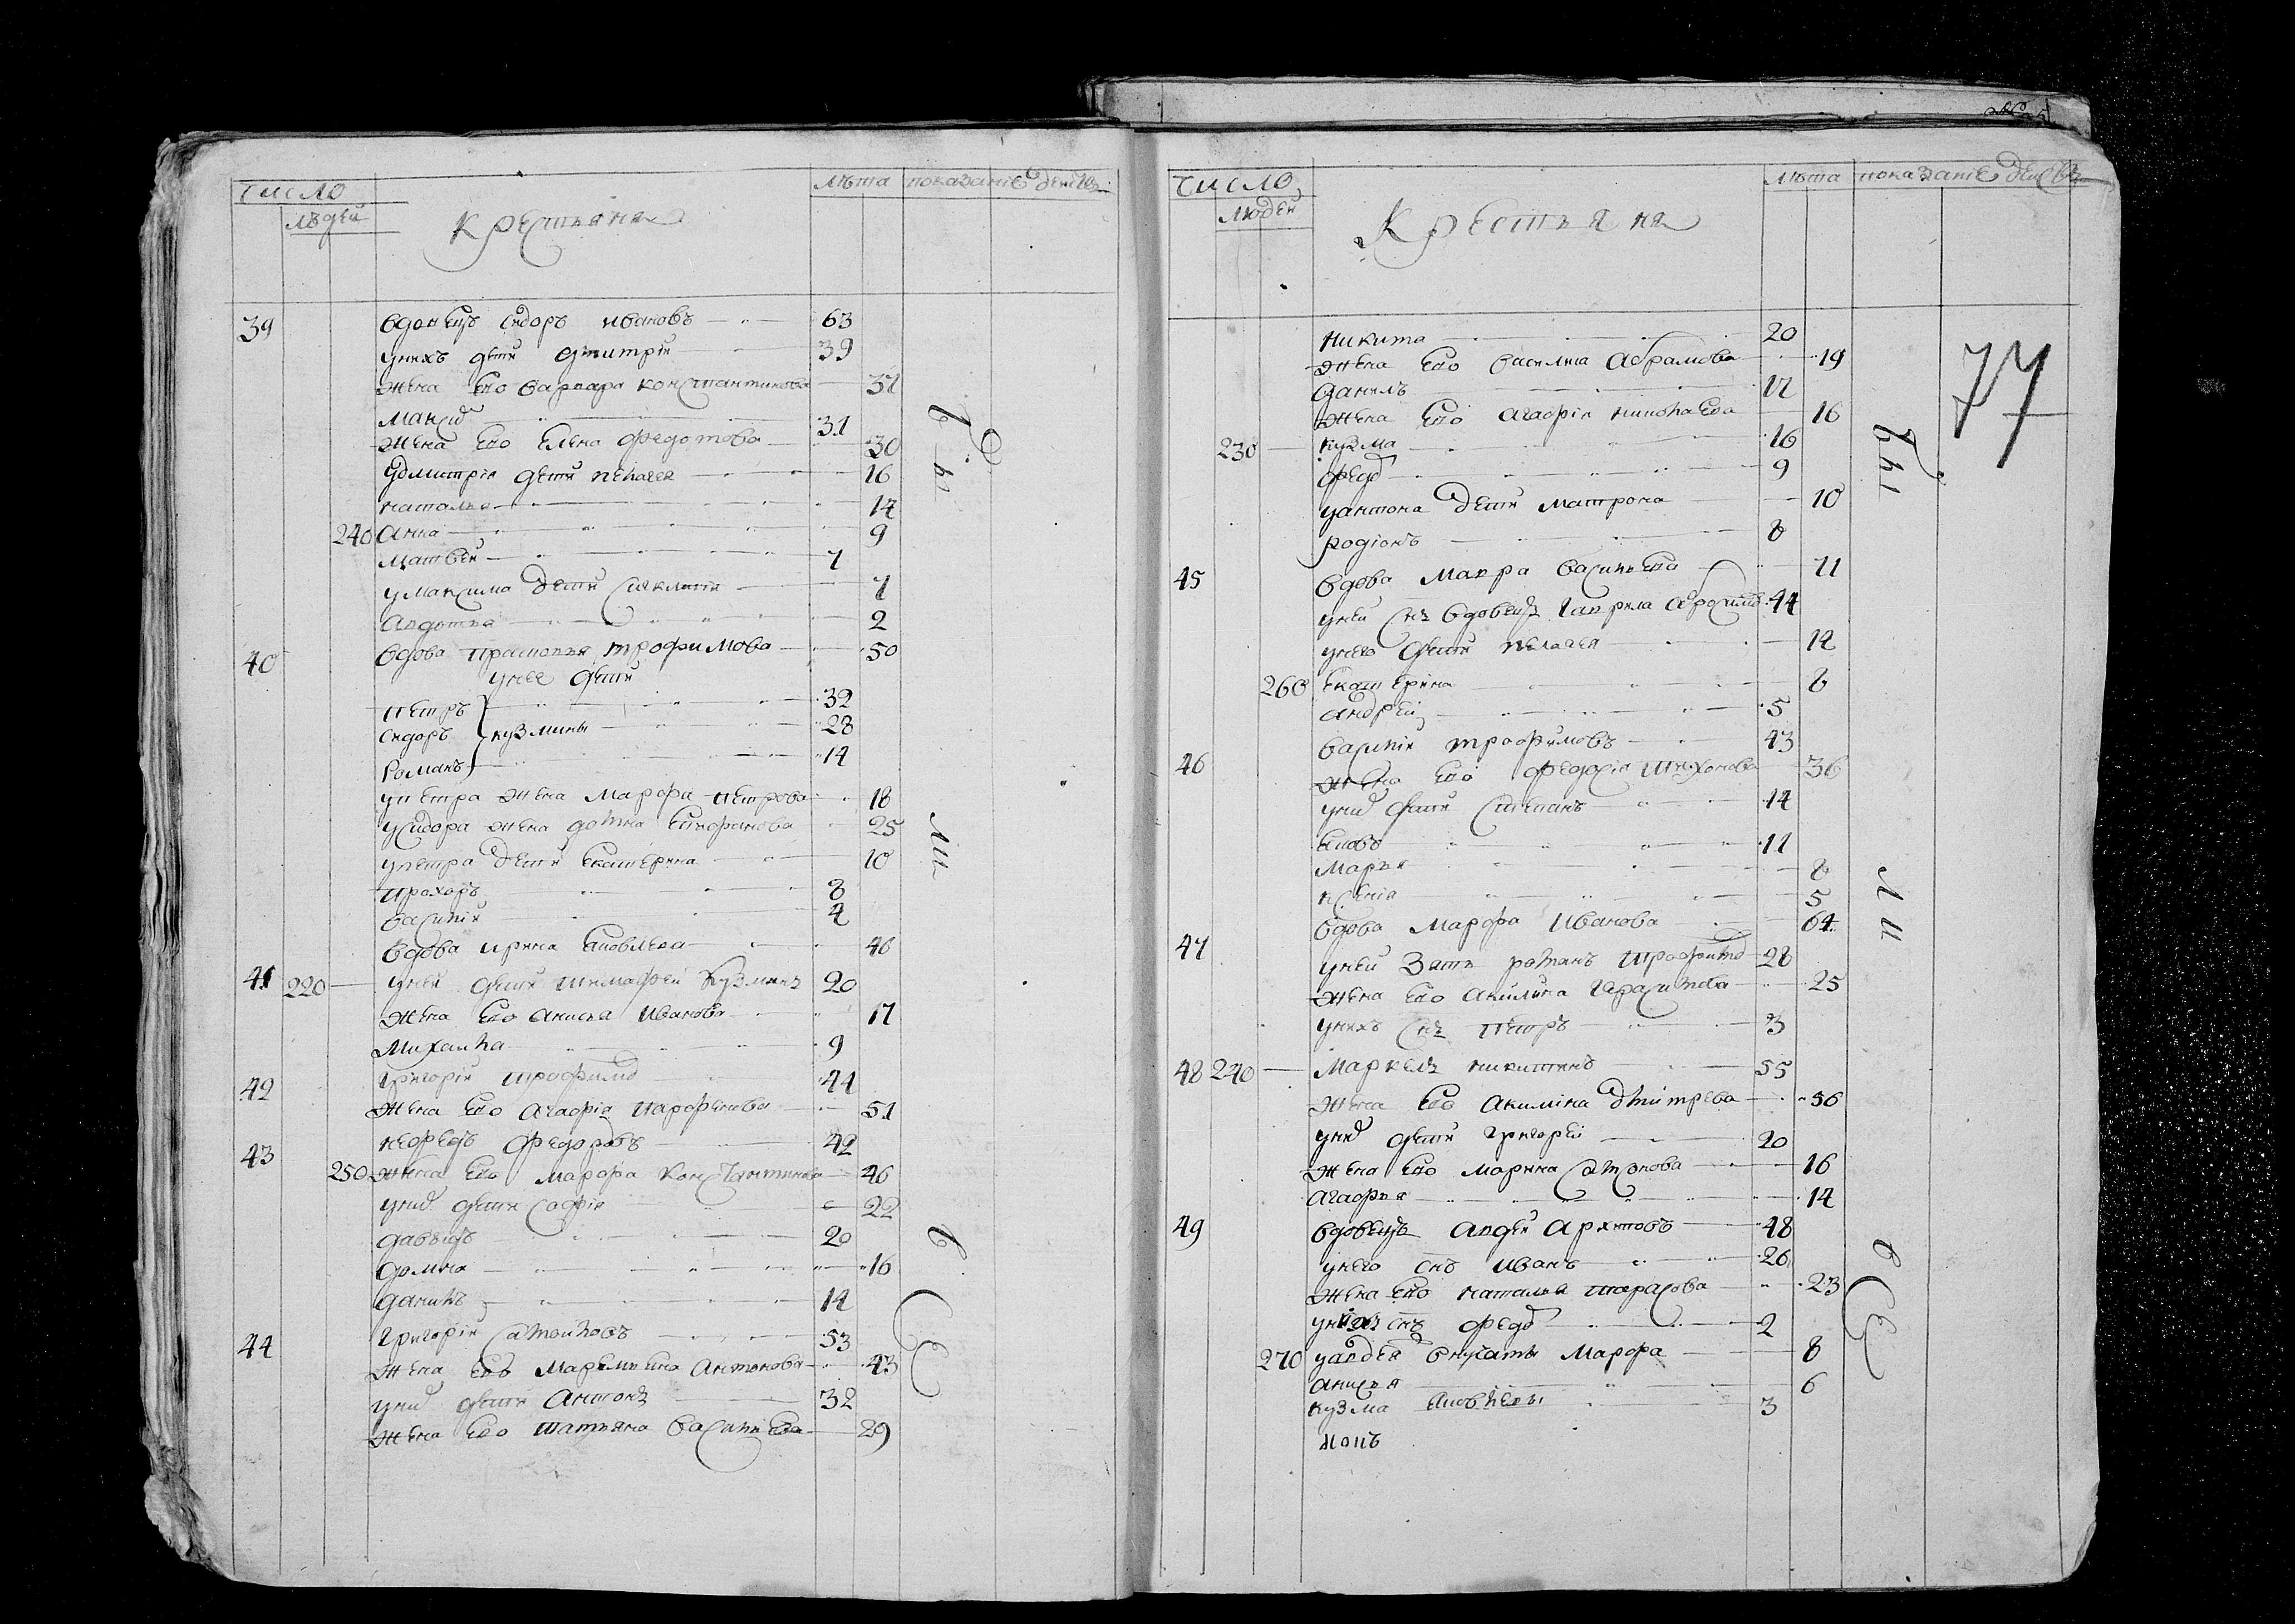 число
людей
Крестьяня
лѣта
показание действ
39 вдовецъ Сидоръ Ивановъ 63
у нихъ дети Дмитрий 39
жена ево Варвара Константинова 37
Максим 31
жена ево Елена Федотова 30
у Дмитрия дети Пелагея 16
Наталья 14
240 Анна 9
Матвей 7
у Максима дети 7
Авдотья 2
40 вдова Прасковья Трофимова 50
у нее дети
Петръ 32
Сидоръ Кузмины 28
Романъ 14
у Петра жена Марфа Петрова 18
у Сидора жена Домна Епифанова 25
у Петра дети Екатерина 10
Прохоръ 8
Василий 4
вдова Ирина Яковлева 46
41 220 у ней дети Тимофей Кузминъ 20
жена ево Анисья Иванова 17
Михаила 9
42 Григорий Трофимов 44
жена ево Агафия Парфенова 51
43 Нефедъ Федоровъ 42
250 жена ево Марфа Константинова 46
у них дети София 22
Давыдъ 20
Домна 16
Данилъ 14
44 Григорий Самойловъ 53
жена ево Маремьяна Антонова 43
у них дети Антонъ 32
жена ево Татьяна Василиева 29
бы
ли
все
число
людей
Крестьяня
лѣта
показание действ
77
Никита 20
жена ево Василиса Абрамова 19
Данилъ 17
жена ево Агафия Николаева 16
230 Кузма 16
Федор 9
у Антона дети Матрона 10
Родионъ 8
45 вдова Мавра Василиева 71
у ней снъ вдовецъ Гаврила 44
у него дети Пелагея 12
260 Екатерина 8
Андрей 5
46 Василий Трофимовъ 43
жена ево Федосия Тихонова 36
у них дети Степанъ 14
Яковъ 11
Марья 8
Ксения 5
47 вдова Марфа Иванова 64
у ней зять Романъ Трофимов 28
жена ево Акилина Гарасимова 25
у нихъ снъ Петръ 3
48 240 Маркелъ Никитинъ 55
жена ево Акилина Дмитрева 56
у них дети Григорей 20
жена ево Марина 16
Агафья 14
49 вдовецъ Авдей Архиповъ 48
у него снъ Иванъ 26
жена ево Наталья Тарасова 23
у нихъ снъ Федор 2
270 у Авдея внучаты Марфа 8
Анисья 6
Кузма Яковлевы 3
попъ
бы
ли
все